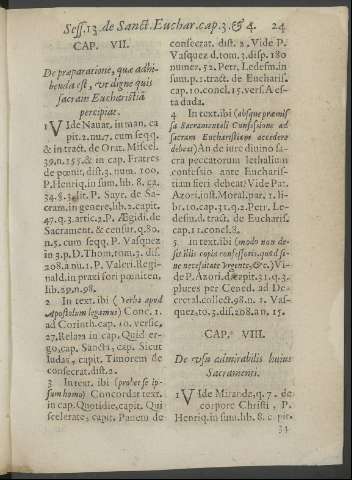 Sess.13.de Sanct.Euchar.cap.3.& 4. 24
CAP. VII.
De præparatione, quæ adhi-
benda est, vt digne quis
sacram Eucharistiã
percipiat.
1 VIde Nauar. in man. ca
pit. 2. nu. 7. cum seqq.
& in tract. de Orat. Miscel.
39. n. 155. & in cap. Fratres
de pœnit. dist. 3. num. 100.
P. Henriq. in sum. lib. 8. ca.
34. 8. P. Sayr. de Sa-
cram. in genere, lib. 2. capit.
47. q. 3. artic. 2. P. Ægidi. de
Sacrament. & censur. q. 80.
n. 5. cum seqq. P. Vasquez
in 3. p. D. Thom. tom. 3. dis.
208. a nu. 1. P. Valeri. Regi-
nald. in praxi fori pœniten.
lib. 29. n. 98.
2 In text. ibi (Verba apud
Apostolum legamus) Conc. 1.
ad Corinth. cap. 10. versic.
27. Relata in cap. Quid er-
go, cap. Sancta, cap. Sicut
Iudas, capit. Timorem de
consecrat. dist. 2.
3 In text. ibi (probet se ip-
sum homo) Concordat text.
in cap. Quotidie, capit. Qui
scelerate, capit. Panem de
consecrat. dist. 2. Vide P.
Vasquez d. tom. 3. disp. 180
numer. 52. Petr. Ledesm. in
sum. p. 1. tract. de Eucharis.
cap. 10. concl. 15. vers. A es-
ta dada.
4 In text. ibi (absque præmis
sa Sacramentali Confessione ad
sacram Eucharistiam accedere
debeat) An de iure diuino sa-
cra peccatorum lethalium
confessio ante Eucharis-
tiam fieri debeat? Vide Pat.
Azori. inst. Moral. par. 1. li-
br. 10. cap. 31. q. 2. Petr. Le-
desm. d. tract. de Eucharis.
cap. 11. concl. 8.
5 In text. ibi (modo non de-
sit illis copia confessoris, quod si
ne necessitate vrgente, &c.) Vi-
de P. Azori. d. capit. 31. q. 3.
plures per Cened. ad De-
cretal. collect. 98. n. 1. Vas-
quez, to. 3. dis. 208. a n. 15.
CAP. VIII.
De vsu admirabilis huius
Sacramenti.
1 VIde Mirande, q. 7. de
corpore Christi, P.
Henriq. in sum. lib. 8. c. pit.
34